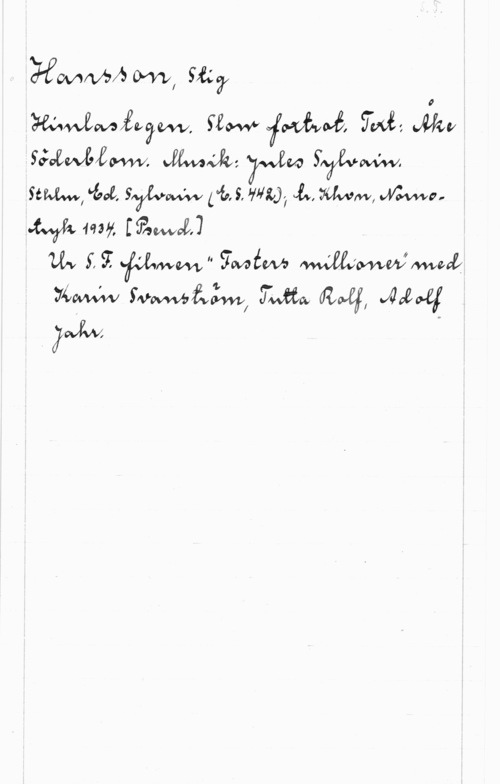 Hansson, Stig
Himlastegen. Slow foxtrot. Text: Åke
Söderblom. Musik: Jules Sylvain.
Sthlm, Ed. Sylvain (E.S. 442); tr. Khvn, Norno-
tryk 1934. [Pseud.]
Ur S.F. filmen "Fasters millioner" med
Karin Svanström, Tutta Rolf, Adolf
Jahr.